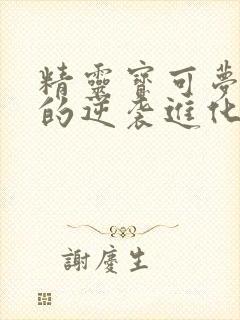 精靈寶可夢
的逆袭進化
謝慶生